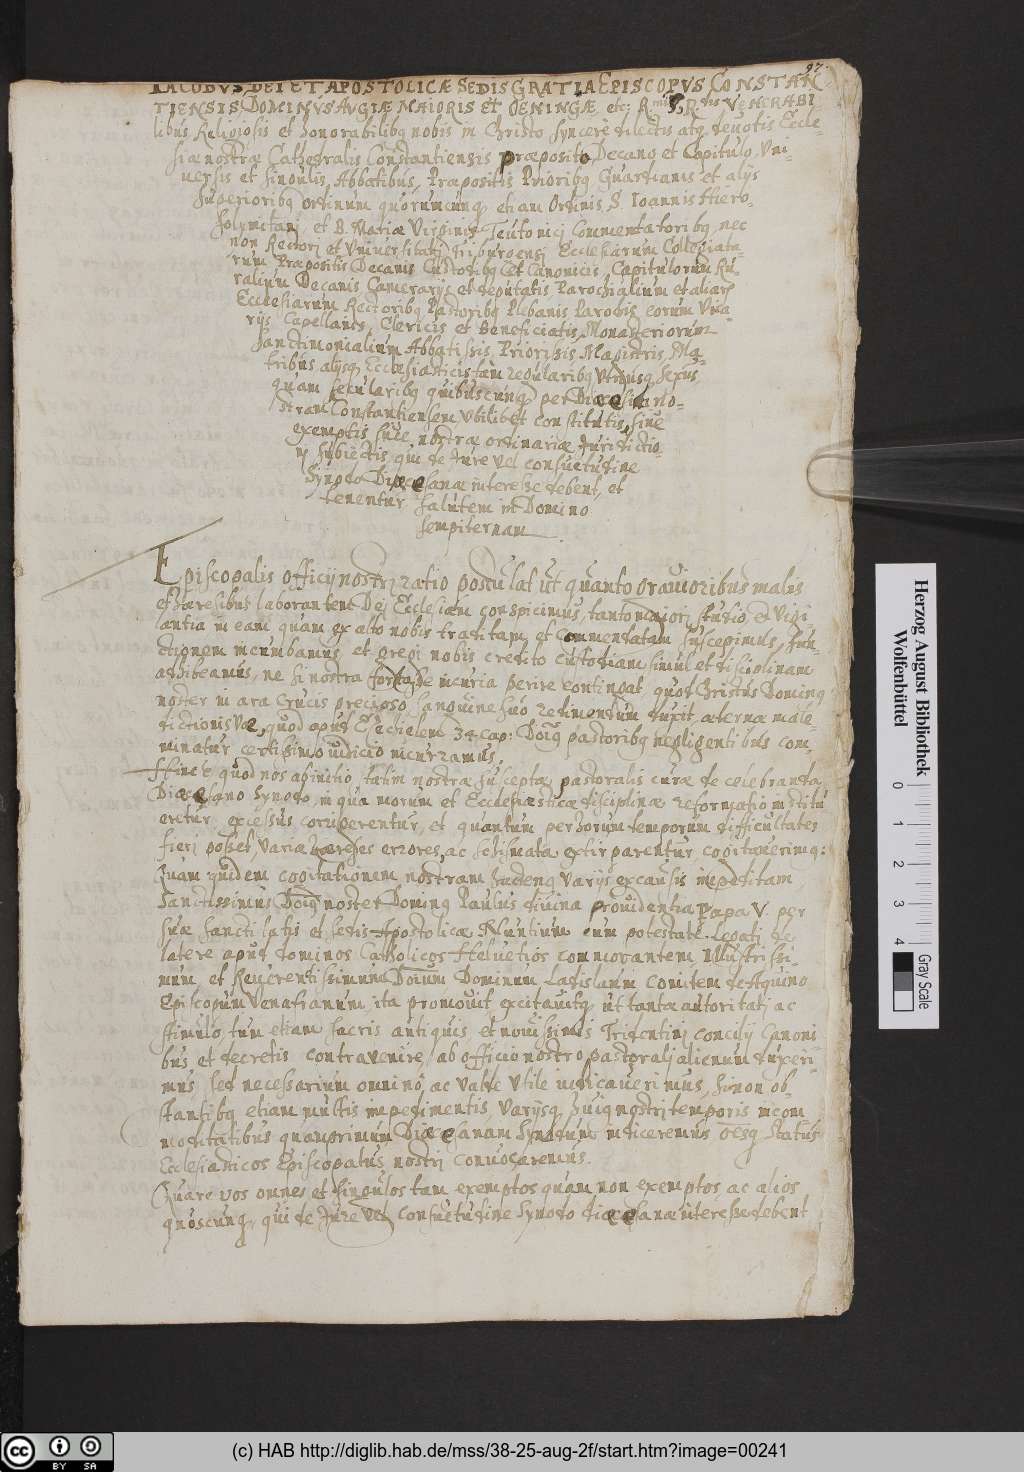 97.
IACOBVS DEI ET APOSTOLICÆ SEDIS GRATIA EPISCOPVS CONSTAN-
TIENSIS, DOMINVS AVGIÆ MAIORIS ET OENINGÆ, etc: R.mis R.dis VENERABI-
libus Religiosis et honorabilibq nobis in Christo syncerè dilectis atq deuotis Eccle-
siæ nostræ Cathedralis Constantiensis præposito Decano et Capitulo, Vni-
uersis et singulis Abbatibus, Præpositis Prioribq Guardianis et alijs
superioribq ordinum quorumcunq, etiam Ordinis S. Ioannis Hiero-
solymitani et B. Mariæ Virginis Teutonicj Commentatoribq, nec
non Rectori et Vniuersitati friburgensj Ecclesiarum Collegiata-
rum Præpositis Decanis Custodibq et Canonicis, Capitulorum Ru-
ralium Decanis Camerarijs et deputatis, Parochialium et aliarū
Ecclesiarum Rectoribq Pastoribq Plebanis Parochis eorum Vica-
rijs Capellanis, Clericis et Beneficiatis, Monasteriorum
sanctimonialium Abbatissis, Priorissis, Magistris, Ma-
tribus alijsq Ecclesiasticis tàm regularibq utriusq sexus
quam secularibq quibuscunq per Diæcesim no-
stram Constantiensem Vbilibet constitutis, siue
exemptis siue nostræ ordinariæ Iurisdictio-
nj subiectis, qui de Iure vel consuetudine
Synodo Diæcesanæ interesse debent, et
tenentur salutem in Domino
sempiternam.
Episcopalis officij nostrj ratio postulat ut quanto grauioribus malis
et hæresibus laborantem Dej Ecclesiam conspicimus, tanto maiorj studio & Vigi-
lantia in eam quam ex alto nobis traditam, et commendatam suscepimus, fun-
ctionem incumbamus, et gregi nobis credito custodiam simul et disciplinam
adhibeamus, ne si nostra fortasse incuria perire contingat, quod Christus Dominq
noster in ara crucis precioso sanguine suo redimendum duxit, æternæ male-
dictionis Væ, quod apud Ezechielem 34. cap: Dōig pastoribq negligentibus com-
minatur certissimo iudicio incurramus.
Hinc è quod nos ab initio statim nostræ susceptæ pastoralis curæ de celebranda
Diæcesano Synodo, in qua morum et Ecclesiasticæ disciplinæ reformatio institu-
eretur, excessus corriperentur, et quantum per horum temporum difficultates
fieri posset, variæ hæreses errores, ac schismata extirparentur cogitauerimq:
Quam quidem cogitationem nostram hactenq varijs ex causis impeditam,
Sanctissimus Dōig noster Dominq Paulus diuina prouidentia Papa V. per
suæ sanctitatis et sedis Apostolicæ Nuntium cum potestate Legati de
latere apud dominos Catholicos Heluetios commorantem Illustrissi-
mum et Reuerentissimum Dōium Dominum Ladislaum Comitem de Aquino
Episcopum Venafranum, ita promouit, excitauitq, ut tantæ autoritatj ac
stimulo, tum etiam sacris antiquis et nouissimis Tridentinj concilij Canoni-
bus et decretis contrauenire, ab officio nostro pastoralj alienum duxeri-
mus, sed necessarium omninò, ac valde vtile iudicauerimus, si non ob-
stantibq etiam multis impedimentis, varijsq huiq nostrj temporis incom-
moditatibus quamprimum Diæcesanam Synodum indiceremus oēsq status
Ecclesiasticos Episcopatus nostrj conuocaremus.
Quare vos omnes et singulos tam exemptos quam non exemptos ac alios
quoscunq, qui de Iure vel consuetudine Synodo diæcesanæ interesse debent
Herzog August Bibliothek
Wolfenbüttel
0 1 2 3 4
Gray Scale
cc BY SA
(c) HAB http://diglib.hab.de/mss/38-25-aug-2f/start.htm?image=00241